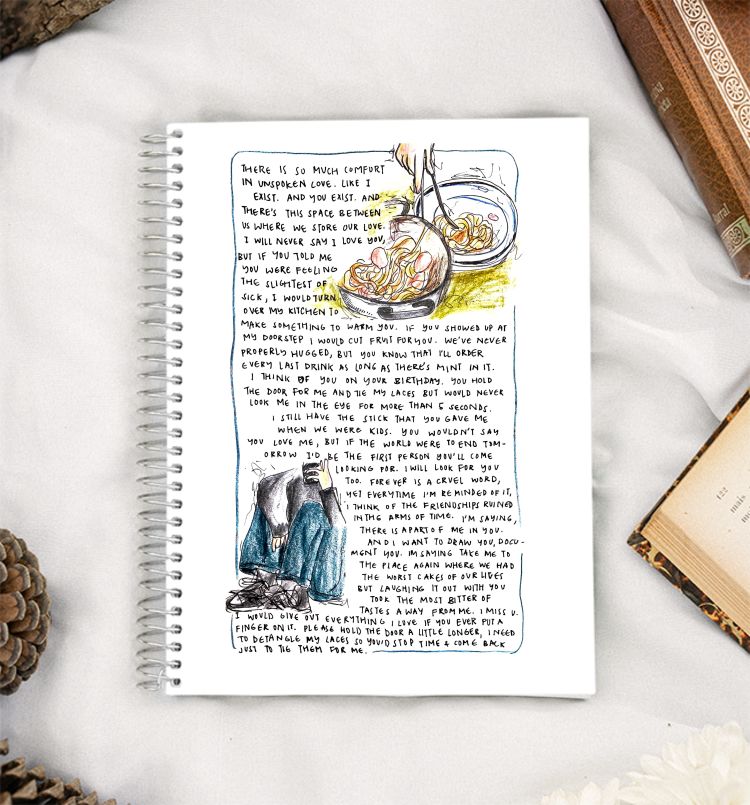 THERE IS SO MUCH COMFORT
IN UNSPOKEN LOVE. LIKE I
EXIST. AND YOU EXIST. AND
THERE'S THIS SPACE BETWEEN
US WHERE WE STORE OUR LOVE.
I WILL NEVER SAY I LOVE YOU,
BUT IF YOU TOLD ME
YOU WERE FEELING
THE SLIGHTEST OF
SICK, I WOULD TURN
OVER MY KITCHEN TO
MAKE SOMETHING TO WARM YOU. IF YOU SHOWED UP AT
MY DOORSTEP I WOULD CUT FRUIT FOR YOU. WE'VE NEVER
PROPERLY HUGGED, BUT YOU KNOW THAT I'LL ORDER
EVERY LAST DRINK AS LONG AS THERE'S MINT IN IT.
I THINK OF YOU ON YOUR BIRTHDAY. YOU HOLD
THE DOOR FOR ME AND TIE MY LACES BUT WOULD NEVER
LOOK ME IN THE EYE FOR MORE THAN 5 SECONDS.
I STILL HAVE THE STICK THAT YOU GAVE ME
WHEN WE WERE KIDS. YOU WOULDN'T SAY
YOU LOVE ME, BUT IF THE WORLD WERE TO END TOM-
ORROW I'D BE THE FIRST PERSON YOU'LL COME
LOOKING FOR. I WILL LOOK FOR YOU
TOO. FOREVER IS A CRUEL WORD,
YET EVERYTIME I'M REMINDED OF IT,
I THINK OF THE FRIENDSHIPS RUINED
IN THE ARMS OF TIME. I'M SAYING,
THERE IS A PART OF ME IN YOU.
AND I WANT TO DRAW YOU, DOCU-
MENT YOU. IM SAYING TAKE ME TO
THE PLACE AGAIN WHERE WE HAD
THE WORST CAKES OF OUR LIVES
BUT LAUGHING IT OUT WITH YOU
TOOK THE MOST BITTER OF
TASTES AWAY FROM ME. I MISS U.
I WOULD GIVE OUT EVERYTHING I LOVE IF YOU EVER PUT A
FINGER ON IT. PLEASE HOLD THE DOOR A LITTLE LONGER, I NEED
TO DETANGLE MY LACES SO YOU'D STOP TIME + COME BACK
JUST TO TIE THEM FOR ME.
122